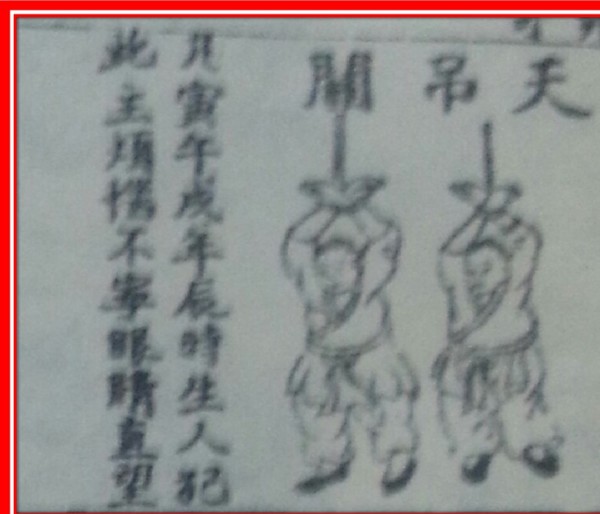 天吊關
凡寅午戌年辰時生人犯
此主煩惱不寧眼睛直望